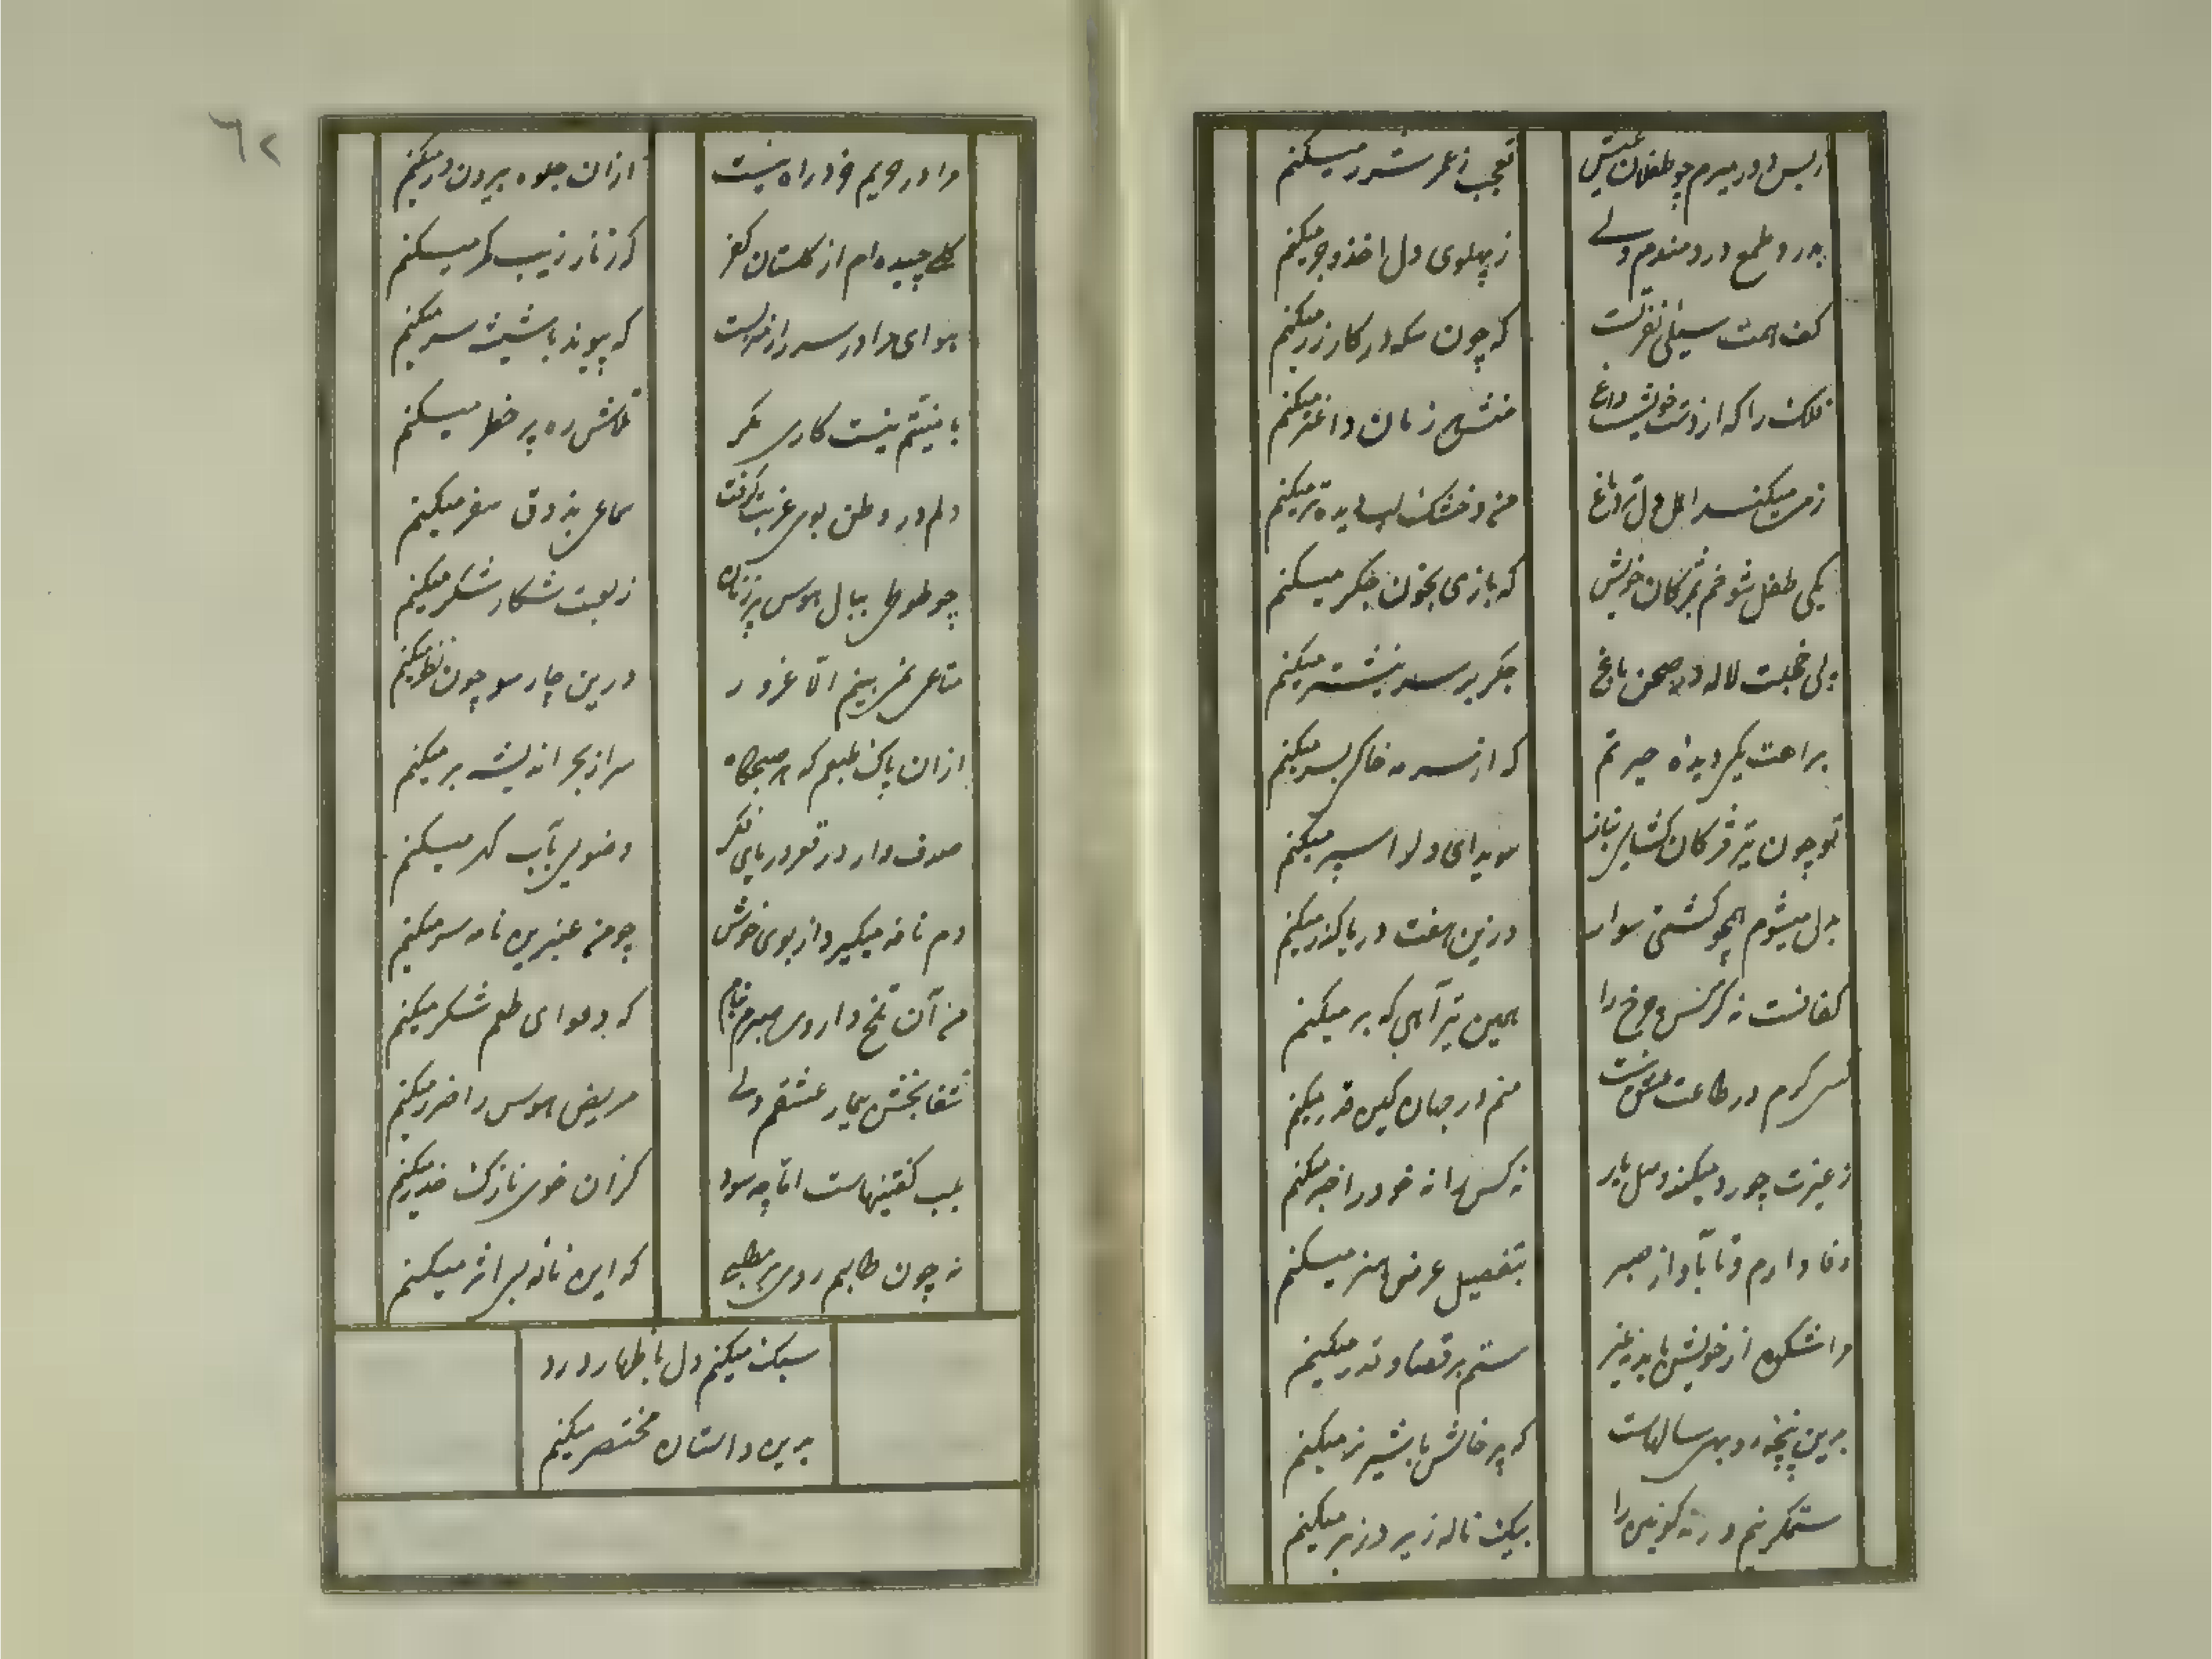 تعجب ز عمر شرر میکنم
بدرد طمع دردمندم ولے
ز پهلوی دل اخذ و جر میکنم
کف همت سیلی
که چون سکه در کار زر میکنم
فلک را که از دست خویشست داغ
منش هر زمان داغتر میکنم
ز من میکند اهل دل تر دماغ
من و خشک لب دیده تر میکنم
یکی طفل شوخم بمژگان خویش
که بازی بخون جگر میکنم
پی خجلت لاله در صحن باغ
جگر بر سر نیشتر میکنم
براهت یکی دیده حیرتم
که از سرمه خاکی بسر میکنم
تو چون تیر مژگان کشایی بناز
سویدای دلرا سپر میکنم
بدل میشوم همچو کشتی سوار
درین هفت دریا گذر میکنم
کفافست نه کرکس چرخ را
همین تیر آهی که بر میکنم
سر کرم در طاعت
منم در جهان کین قدر میکنم
ز غیرت چو رد میکند وصل یار
نه کس را نه خود را خبر میکنم
وفا دارم و تا آباد از صبر
بتفصیل عرض هنر میکنم
مرا شکوه از خویش باید نه غیر
ستم بر قضا و قدر میکنم
برین پنجه روبهی سالهاست
که پرخاش با شیر نر میکنم
ستمگر نیم ورنه کونین را
بیک ناله زیر و زبر میکنم
٦٢
مرا در حریم خرد راه نیست
از آن جلوه بیرون در میکنم
گلے چیده ام از گلستان کفر
که زنار زیب کمر میکنم
هوای مرا در سر
که پیوند با شیشه سر میکنم
با نیتم نیست کاری مگر
تلاش ره پر خطر میکنم
دلم در وطن بوی غربت گرفت
سماعی بذوق سفر میکنم
چو طوطی ببال هوس پر زنان
ز لعبت شکار شکر میکنم
متاعی نمی بینم الا غرور
درین چار سو چون نظر میکنم
از آن پاک طبعم که هر صبحگاه
سر از بحر اندیشه بر میکنم
صدف وار در قعر دریای فکر
وضویی بآب گهر میکنم
دم نافه میگیرد از بوی خوش
چو من عنبرین نامه سر میکنم
من آن تلخ داروی صبرم
که دعوای طعم شکر میکنم
شفا بخش بیمار عشقم ولے
مریض هوس را ضرر میکنم
بلب گفتنیهاست اما چه سود
کزان خوی نازک حذر میکنم
نه چون طالبم روی بر مطلبی
که این ناله بی اثر میکنم
سبک میکنم دل باظهار درد
برین داستان مختصر میکنم